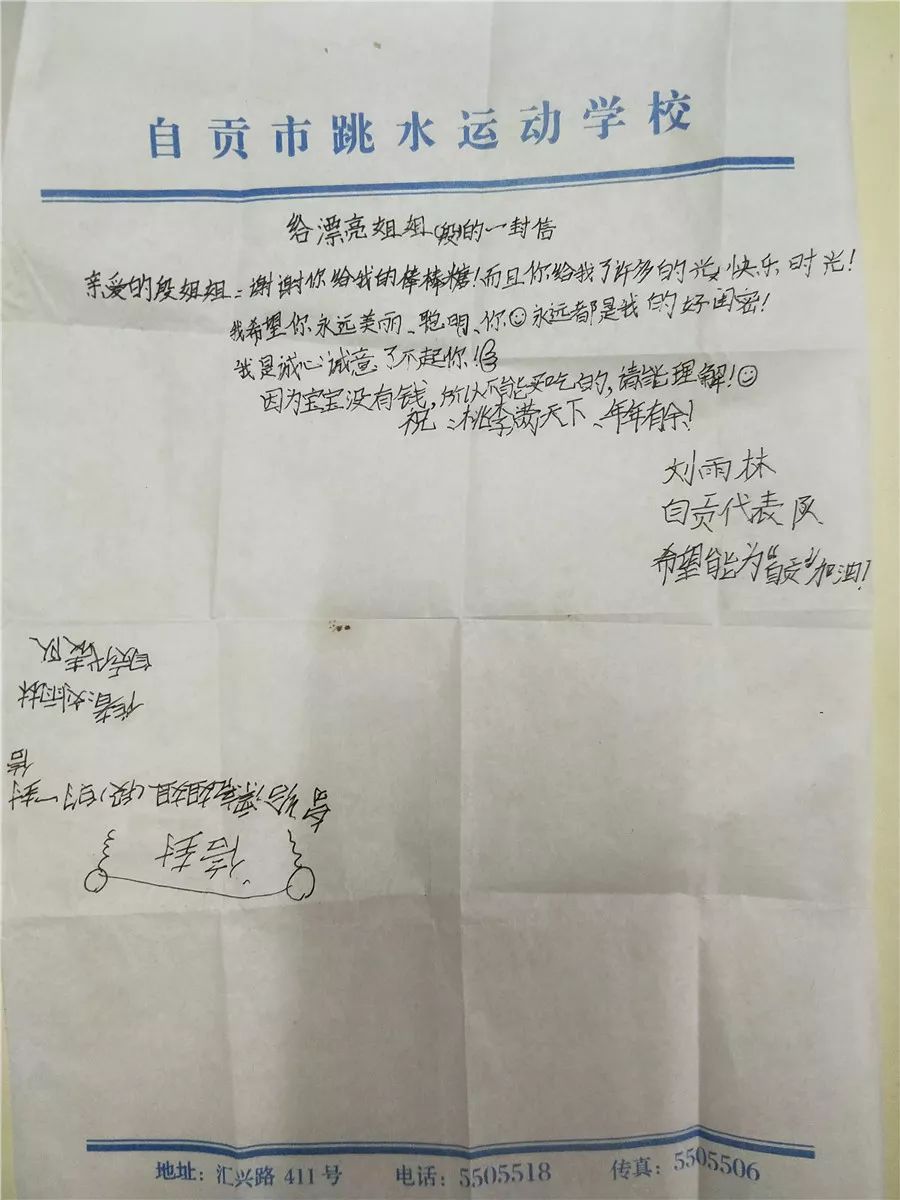 自贡市跳水运动学校
给漂亮姐姐(段)的一封信
亲爱的段姐姐:谢谢你给我的棒棒糖!而且你给我了许多的光,快乐时光!
我希望你永远美丽、聪明、你永远都是我的好闺密!
我是诚心诚意了不起你!
因为宝宝没有钱,所以不能买吃的,请能理解!
祝:桃李满天下、年年有余!
刘雨林
自贡代表队
希望能为“自贡”加油!
信封
给漂亮姐姐(段)的一封
信
作者:刘雨林
自贡代表队
地址:汇兴路 411 号 电话:5505518 传真:5505506